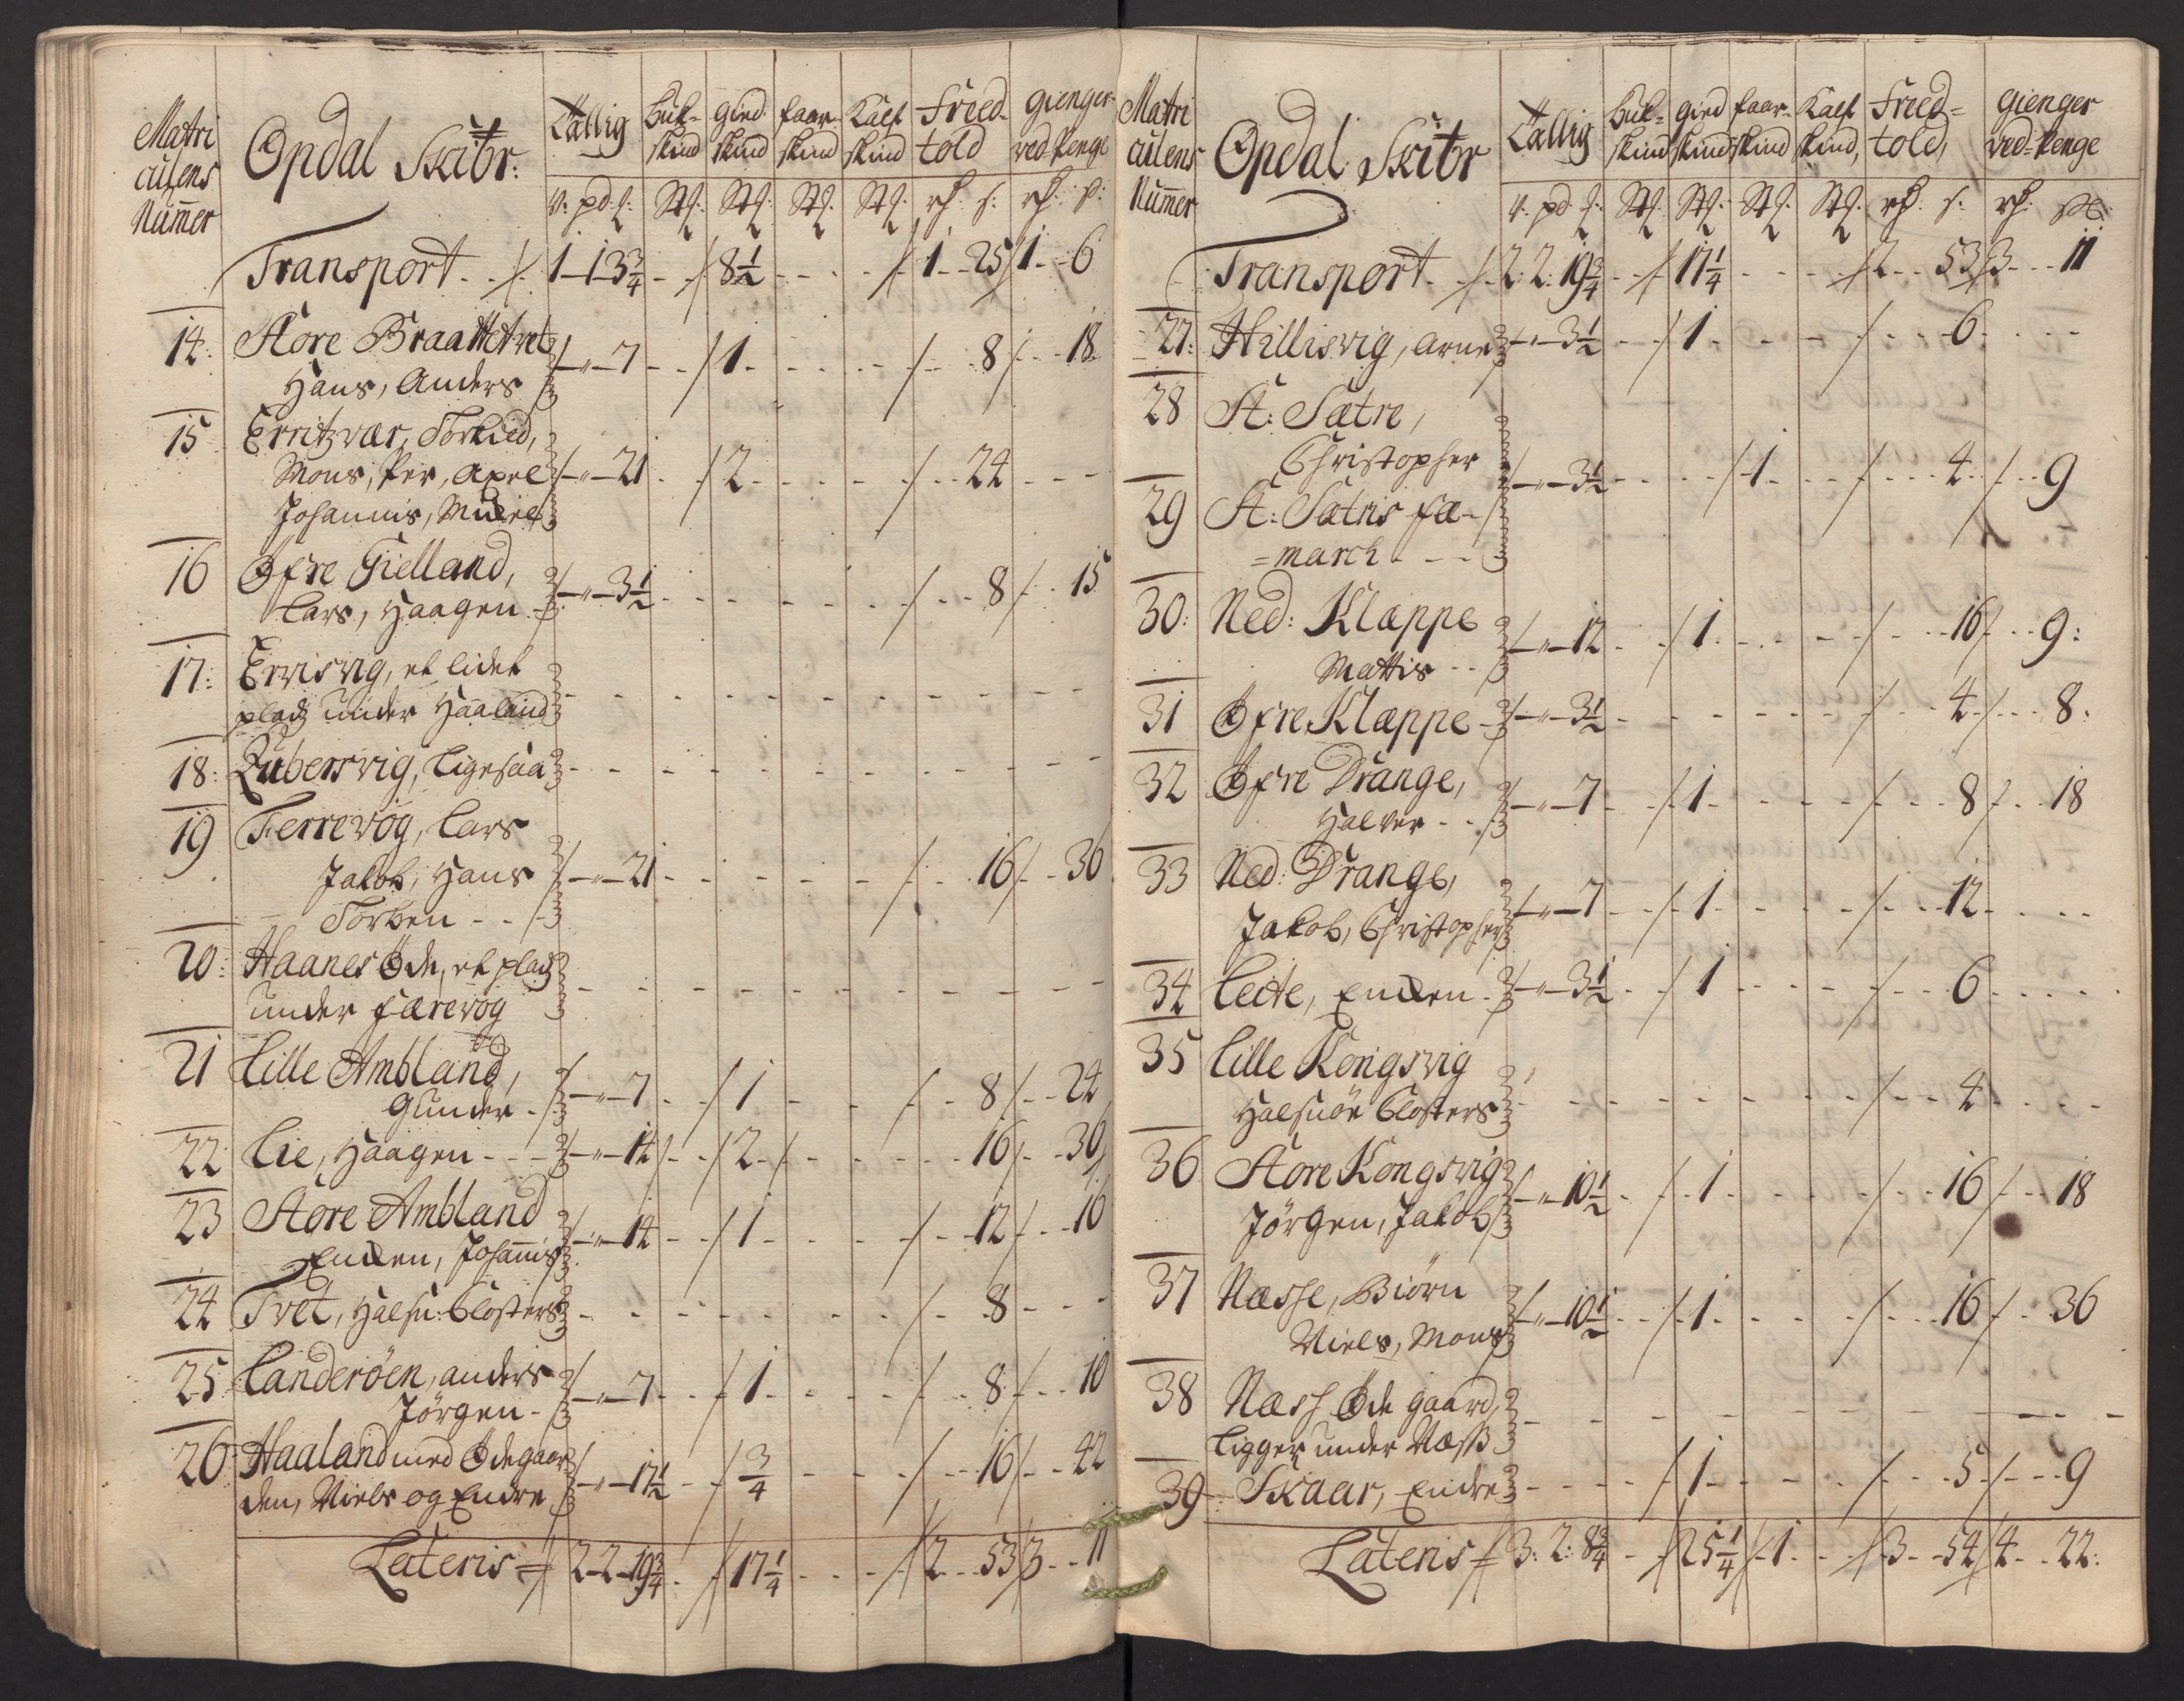 Matri
culens
Nummer
Opdal Skibr:
Tallig
Buk-
skind
gied
skind
faar-
skind
Kalf
skind
Freed-
told
gienger-
ved Penge
v: pd: ℔:
Transport - - 1 - 1 - 3 3/4 - - 8 1/2 - - - 1 - 25 1 - 6
14: Store Braattetvet
Hans, Anders - " - 7 - - 1 - - - 8 - - 18
15 Erritzvær, Torkied,
Mons, Per, Axel - " - 21 - - 2 - - - 24 - - -
Johannis,
16 Øfre Gielland,
Lars, Haagen - " - 3 1/2 - - - - 8 - - 15
17: Ervisvig, et lidet
plads under Haaland
18: Qubersvig, ligesaa
19 Ferrevog, Lars
Jakob, Hans - " - 21 - - - - 16 - - 36
Torben - -
20: Haanes Øde, et plads
under færevog
21 Lille Ambland,
Gunder - - " - 7 - - 1 - - - 8 - - 24
22: Lie, Haagen - - - " - 14 - - 2 - - - 16 - - 36
23 Store Ambland
Johannis - " - 14 - - 1 - - - 12 - - 16
24 Tvet, Halsn: Closters - - - - - 8 - - -
25 Landerøen, anders
Jørgen - - " - 7 - - 1 - - - 8 - - 10
26 Haaland med Ødegaar
den, Niels og Endre - " - 17 1/2 - - 3/4 - - - 16 - - 42
Lateris 2 - 2 - 19 3/4 - - 17 1/4 - - - 2 - - 53 3 - - 11
Matri
culens
Nummer
Opdal Skibr
Tallig
Buk-
skind
gied
skind
faar-
skind
Kalf
skind,
Freed-
told,
gienger
ved-Penge
v: pd: ℔:
Transport - 2: 2: 19 3/4 - - 17 1/4 - - - 2 - - 53 3 - - 11
27: Hillisvig, Arne - " - 3 1/2 - - 1 - - - 6 - - -
28 St: Sætre,
Christopher - " - 3 1/2 - - - 1 - - - 4 - - 9
29 St: Sætris fæ-
=march - - -
30: Ned: Klæppe
Mattis - - - " - 12 - - 1 - - - 16 - - 9:
31 Øfre Klæppe - - " - 3 1/2 - - - - 4 - - 8:
32 Øfre Drange,
Halver - - - " - 7 - - 1 - - - 8 - - 18
33 Ned: Drange,
Jakob, Christopher - " - 7 - - 1 - - - 12 - - -
34 Leite, - " - 3 1/2 - - 1 - - - 6 - - -
35 Lille Kongsvig
Halsnøe Closters - - - - - 4 - - -
36 Store Kongsvig
Jørgen, Jakob - " - 10 1/2 - - 1 - - - 16 - - 18
37 Næsse, Biørn
Niels, Mons - " - 10 1/2 - - 1 - - - 16 - - 36
38 Næss Øde gaard,
Ligger under Næss
39 Skaar, Endre - - - - 1 - - - 5 - - 9
Lateris 3: 2: 8 3/4 - - 25 1/4 - 1 - - 3 - - 54 4 - - 22: